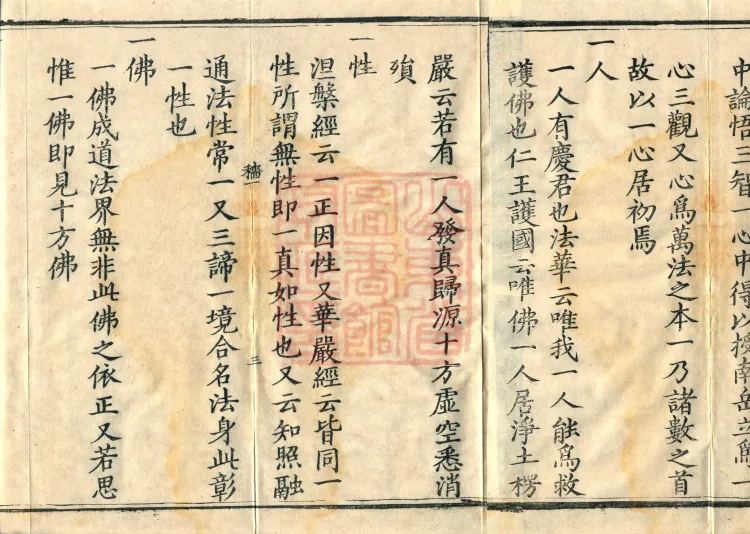 中論悟三智一心中得以授南岳立爲一
心三觀又心爲萬法之本一乃諸數之首
故以一心居初焉
一人
一人有慶君也法華云唯我一人能爲救
護佛也仁王護國云唯佛一人居淨土楞
嚴云若有一人發真歸源十方虛空悉消
殞
一性
涅槃經云一正因性又華嚴經云皆同一
性所謂無性即一真如性也又云知照融
一 三
通法性常一又三諦一境合名法身此彰
一性也
一佛
一佛成道法界無非此佛之依正又若思
惟一佛即見十方佛